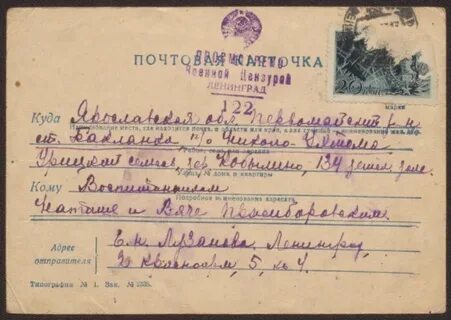 ПОЧТОВАЯ КАРТОЧКА
ПРОСМОТРЕНО
Военной Цензурой
ЛЕНИНГРАД
122
20
марки
Куда Ярославская обл Первомайский р-н
Наименование места, где находится почта, и области или края, а для станции
ст. Бакланка, п/о Николо-
Район, село или деревня
Урицкий сельсов, дер Кобылино, 134 детск. дом.
Улица, № дома и квартиры
Кому Воспитанникам
Подробное наименование адресата
Наташе и Вяче
Адрес отправителя
Е. Н. Лузанова, Ленинград,
5, кв 4
Типография № 1. Зак. № 2335.